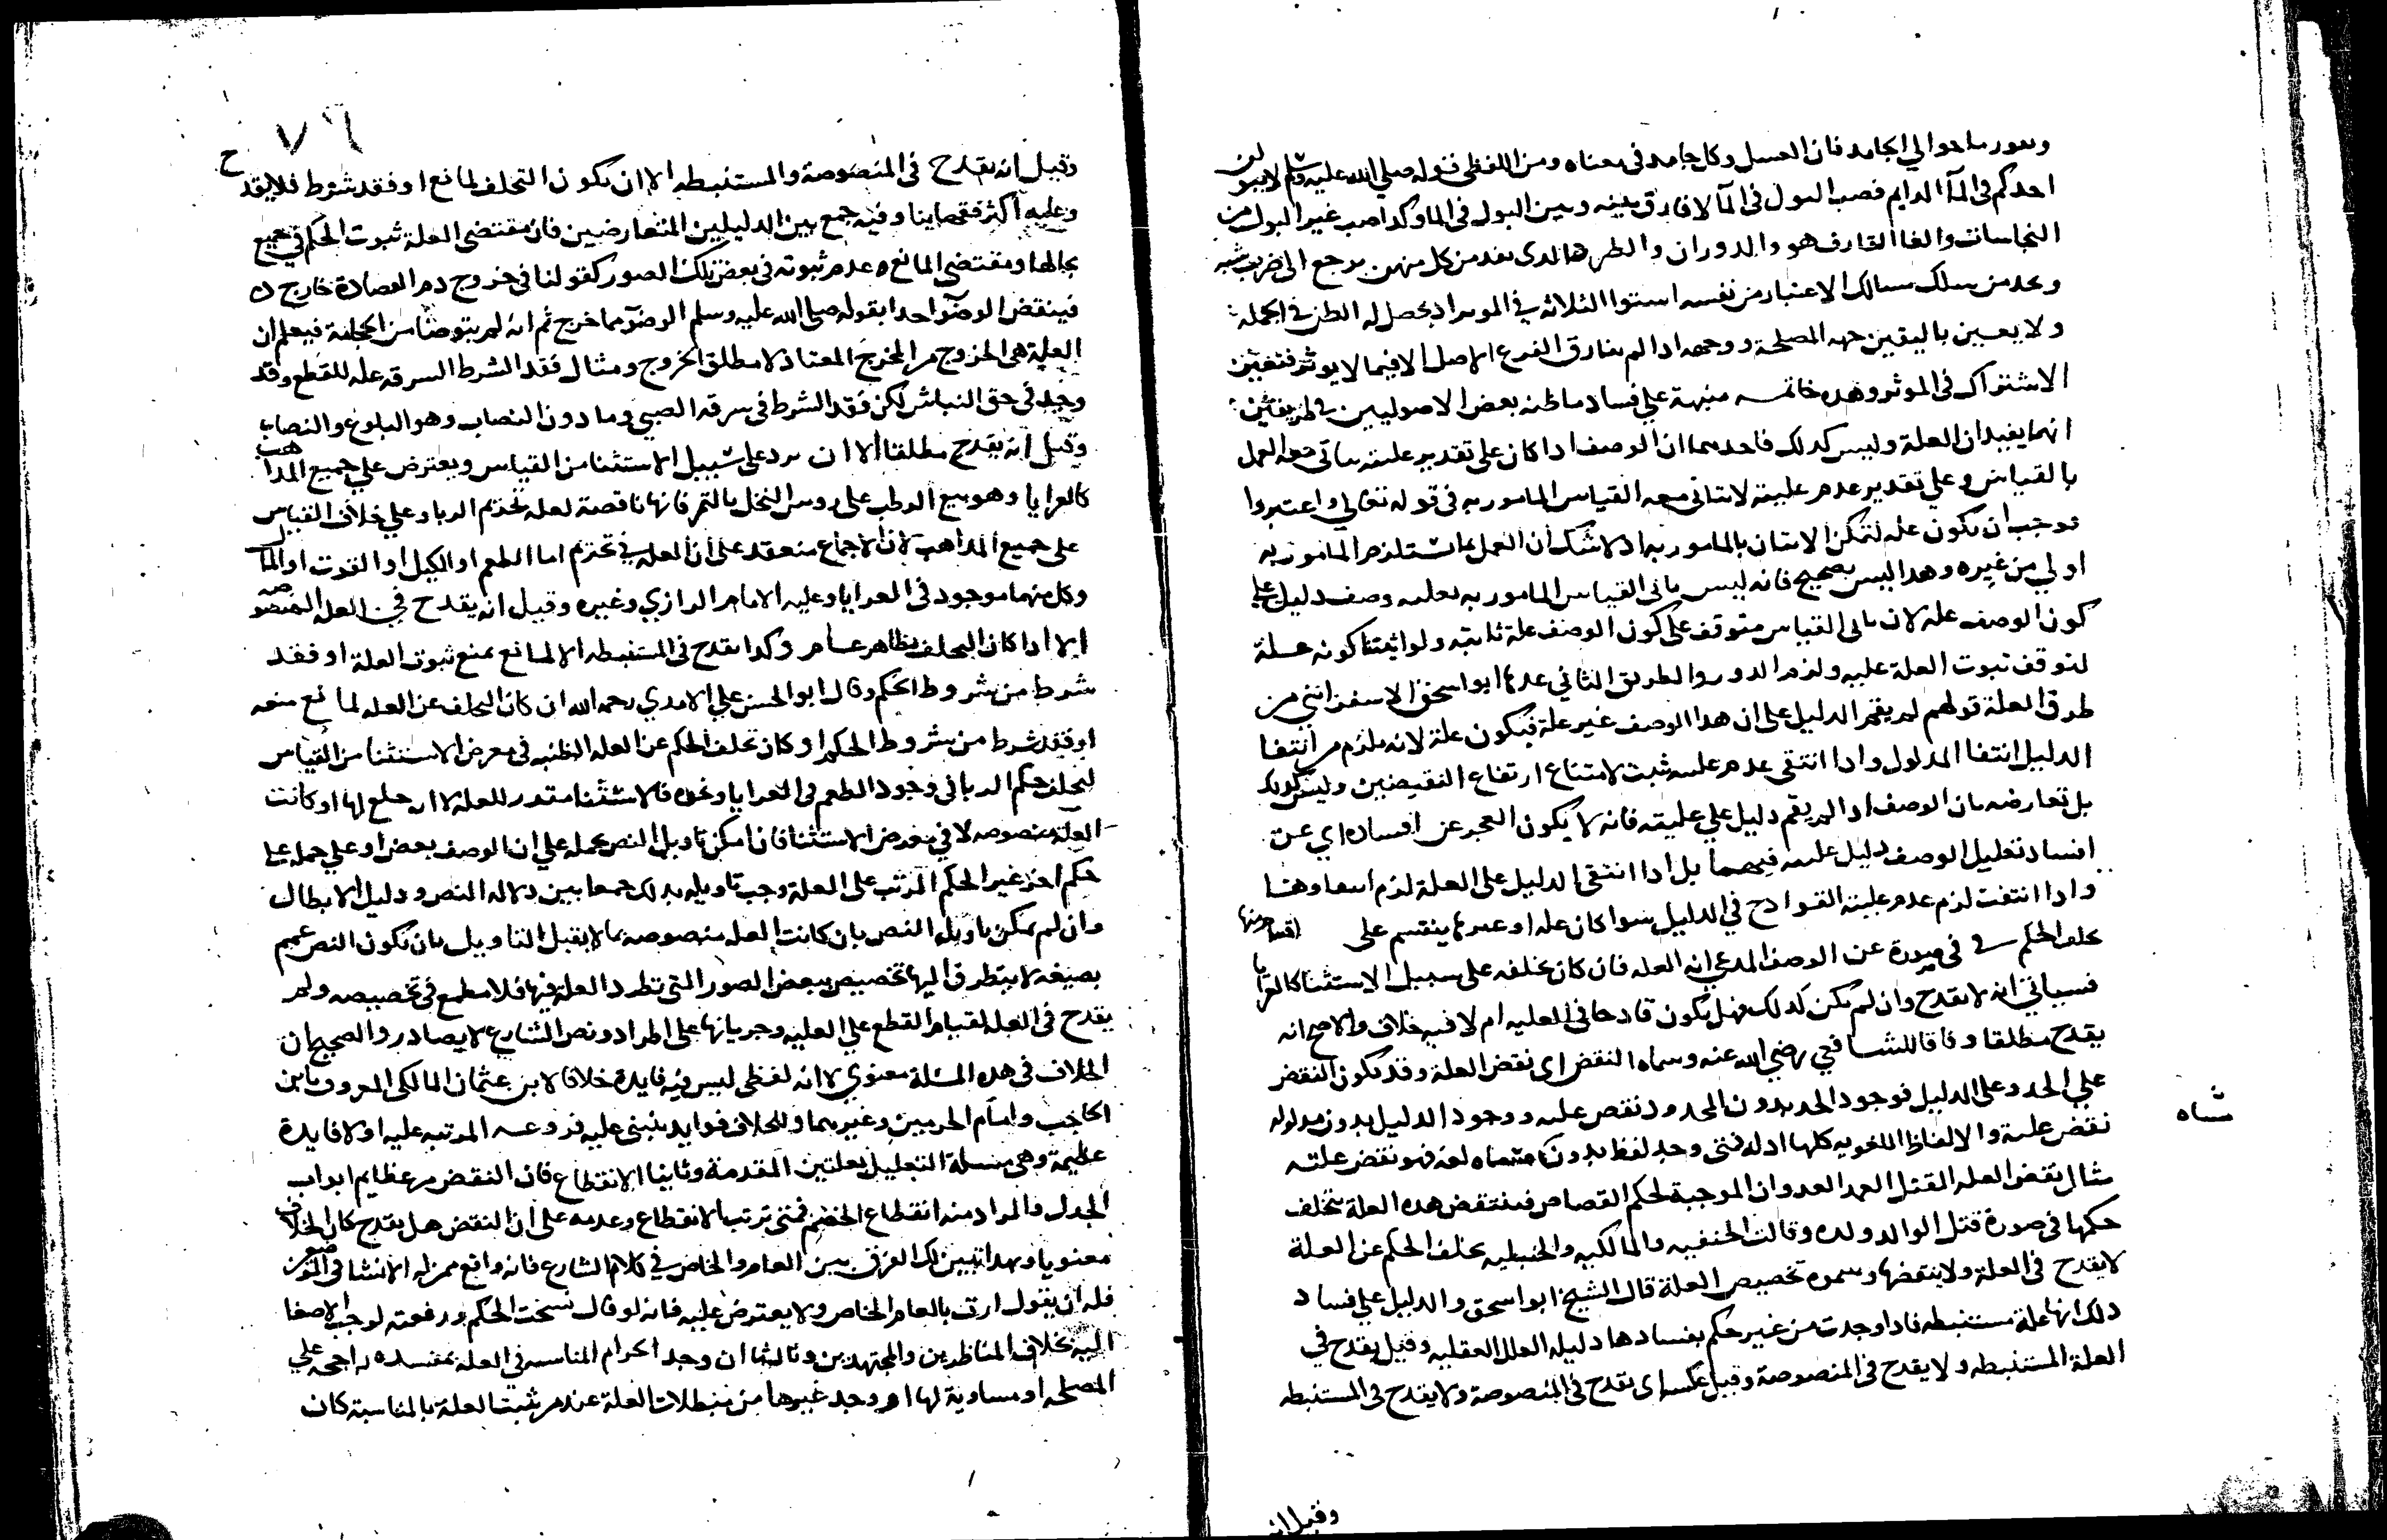 وقوروها حوالي الجامد فان العسل وكل جامد في معناه ومن اللفظي قوله صلى الله عليه وسلم لا يبولن
احدكم في المآ الدايم فصب البول في المآ لا فارق بينه وبين البول في الما وكذا صب غير البول من
النجاسات والغا الفارق هو والدوران والطرد هالدى بعد من كل منهن يرجع الى ضرب شبه
وعند من سلك مسالك الاعتبار من نفسه استوا الثلاثه في الموىرا ذ يحصل له الظن في الجملة
ولا يعين باليقين جهه المصلحة ووجهه اذا لم يفارق الفرع الاصل الا فيما لا يوثر فتعين
الاشتراك في الموثر وهده خاتمه منبهة على فساد ما ظنه بعض الاصوليين في طريقين
انهما يفيدان العلة وليس كدلك فاحدهما ان الوصف اذا كان على تقدير عليته ياتي معه العمل
بالقياس وعلى تقدير عدم عليته لا يتاتى معه القياس المامور به في قوله تعالى واعتبروا
توجب ان يكون عله لتمكن الاتيان بالمامور به اد لا شك ان العمل بما يستلزم المامور به
اولى من غيره وهدا ليس بصحيح فانه ليس ياتى القياس المامور به بعلىه وصف دليل على
كون الوصف عله لان تاتى القياس متوقف على كون الوصف علة ثابته ولو اثبتنا كونه علة
لتوقف ثبوت العلة عليه ولزم الدور والطريق الثاني عدها ابو اسحق الاسفرائني من
طرق العلة قولهم لم يقم الدليل على ان هدا الوصف غير علة فيكون علة لانه يلزم من انتفا
الدليل انتفا المدلول واذا انتفى عدم علىته ثبت لامتناع ارتفاع النقيضين وليس كذلك
بل تعارضه بان الوصف اذا لم يقم دليل على عليته فانه لا يكون العجز عن افساده اي عن
افساد تعليل الوصف دليل علىته فيهما بل اذا انتفى الدليل على العلة لزم انتفاوها
واذا انتفت لزم عدم عليته القوادح في الدليل سوا كان عله او غيرها ينقسم على اقسام منها
تخلف الحكم في صورة عن الوصف المدعي انه العله فان كان تخلفه على سبيل الاستثنا كالعرايا
فسياتي انه لا يقدح وان لم يكن كدلك فهل يكون قادحا في العليه ام لا فيه خلاف والاصح انه
يقدح مطلقا وفاقا للشافعي رضي الله عنه وسماه النقض اي نقض العلة وقد يكون النقض
على الحد وعلى الدليل فوجود الحد بدون المحدود نقض عليه ووجود الدليل بدون مدلوله
نقض عليه والالفاظ اللغويه كلها ادله فمتى وجد لفظ بدون مسماه لغه فهو نقض عليه
مثال نقض العله القتل العمد العدوان الموجبة لحكم القصاص فتنتقض هده العلة بتخلف
حكمها في صورة قتل الوالد ولده وقالت الحنفيه والمالكيه والحنبليه تخلف الحكم عن العلة
لا يقدح في العلة ولا ينقضها وسموه تخصيص العلة قال الشيخ ابو اسحق والدليل على فساد
دلك انها علة مستنبطه فاذا وجدت من غير حكم بفسادها دليله العلل العقليه وقيل يقدح في
العلة المستنبطه ولا يقدح في المنصوصة وقيل عكسه اى يقدح في المنصوصة ولا يقدح في المستنبطه
وقيل انه
٧٦
وقيل انه يقدح في المنصوصة والمستنبطه الا ان يكون التخلف لمانع او فقد شرط فلا يقدح
وعليه اكثر فقهاينا وفيه جمع بين الدليلين المتعارضين فان مقتضى العلة ثبوت الحكم في جميع
محالها ومقتضى المانع عدم ثبوته في بعض تلك الصور كقولنا في خروج دم الفصادة خارج
فينقض الوضوء اخدا بقوله صلى الله عليه وسلم الوضوء مما خرج ثم انه لم يتوضا من الحجامة فيعلم ان
العلة هي الخروج من المخرج المعتاد لا مطلق الخروج ومثال فقد الشرط السرقه علة للقطع وقد
وجد في حق النباش لكن فقد الشرط في سرقه الصبي وما دون النصاب وهو البلوغ والنصاب
وقيل انه يقدح مطلقا الا ان يرد على سبيل الاستثنا من القياس ويعترض على جميع المذاهب
كالعرايا وهو بيع الرطب على روس النخل بالتمر فانها ناقصة لعله تحريم الربا وعلى خلاف القياس
على جميع المذاهب لان الاجماع منعقد على ان العله في تحريم اما الطعم او الكيل او القوت او المال
وكل منهما موجود في العرايا وعليه الامام الرازي وغيره وقيل انه يقدح في العله المنصوصه
الا اذا كان التخلف بظاهر عام وكذا يقدح في المستنبطه الا لمانع يمنع ثبوت العلة او فقد
شرط من شروط الحكم وقال ابو الحسن علي الامدي رحمه الله ان كان التخلف عن العله لمانع منعه
او فقد شرط من شروط الحكم او كان تخلف الحكم عن العله الظنيه في معرض الاستثنا من القياس
لتخلف حكم الربا في وجود الطعم في العرايا ونحوه فالاستثنا مقدر للعلة لا ان خلع لها او كانت
العلة منصوصه لا في معرض الاستثنا فان امكن تاويل النص بحمله على ان الوصف بعض او على حمله على
حكم اخر غير الحكم المرتب على العلة وجب تاويله بدلك جمعا بين دلاله النص ودليل الابطال
وان لم يمكن تاويل النص بان كانت العله منصوصه بما لا يقبل التاويل بان يكون النص عمم
بصيغه لا يتطرق اليها تخصيص ببعض الصور التي تطرد العلة فيها فلا مطمع في تخصيصه ولم
يقدح في العله لقيام القطع على العليه وجريانها على اطراد ونص الشارع لا يصادر والصحيح ان
الخلاف في هده المسئلة معنوي لا انه لفظي ليس فيه فايدة خلافا لابن عثمان المالكي المعروف بابن
الحاجب وامام الحرمين وغيرهما وللخلاف فوايد ينبنى عليه فروعه المرتبه عليه اولا فايدة
عظيمة وهي مسئلة التعليل بعلتين المقدمة وثانيا الانقطاع فان النقض من عظايم ابواب
الجدل والمراد منه انقطاع الخصم فمتى ترتب الانقطاع وعدمه على ان النقض هل يقدح كان الخلاف
معنويا وبهدا تبين لك الفرق بين العام والخاص في كلام الشارع فانه واقع بمنزله الانشا في التوضيح
فله ان يقول اردت بالعام الخاص ولا يعترض عليه فانه لو قال نسخت الحكم ورفعته لوجب الاصغا
اليه بخلاف المناظرين والمجتهدين وثالثا ان وجد انخرام المناسبه في العله بمفسده راجحه على
المصلحه او مساوية لها او وجد غيرها من مبطلات العلة عند من ثبت العلة بالمناسبة كان